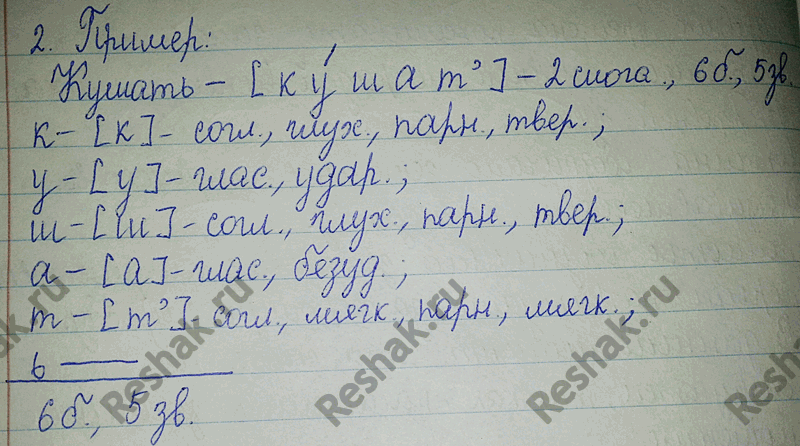 2. Пример:
Кушать – [ку́шат’] – 2 слога., 6 б., 5 зв.
к – [к] – согл., глух., парн., твер.;
у – [у] – глас., удар.;
ш – [ш] – согл., глух., парн., твер.;
а – [а] – глас., безуд.;
т – [т’] – согл., мягк., парн., мягк.;
ь ——
6 б., 5 зв.
Reshak.ru
Reshak.ru
Reshak.ru
Reshak.ru